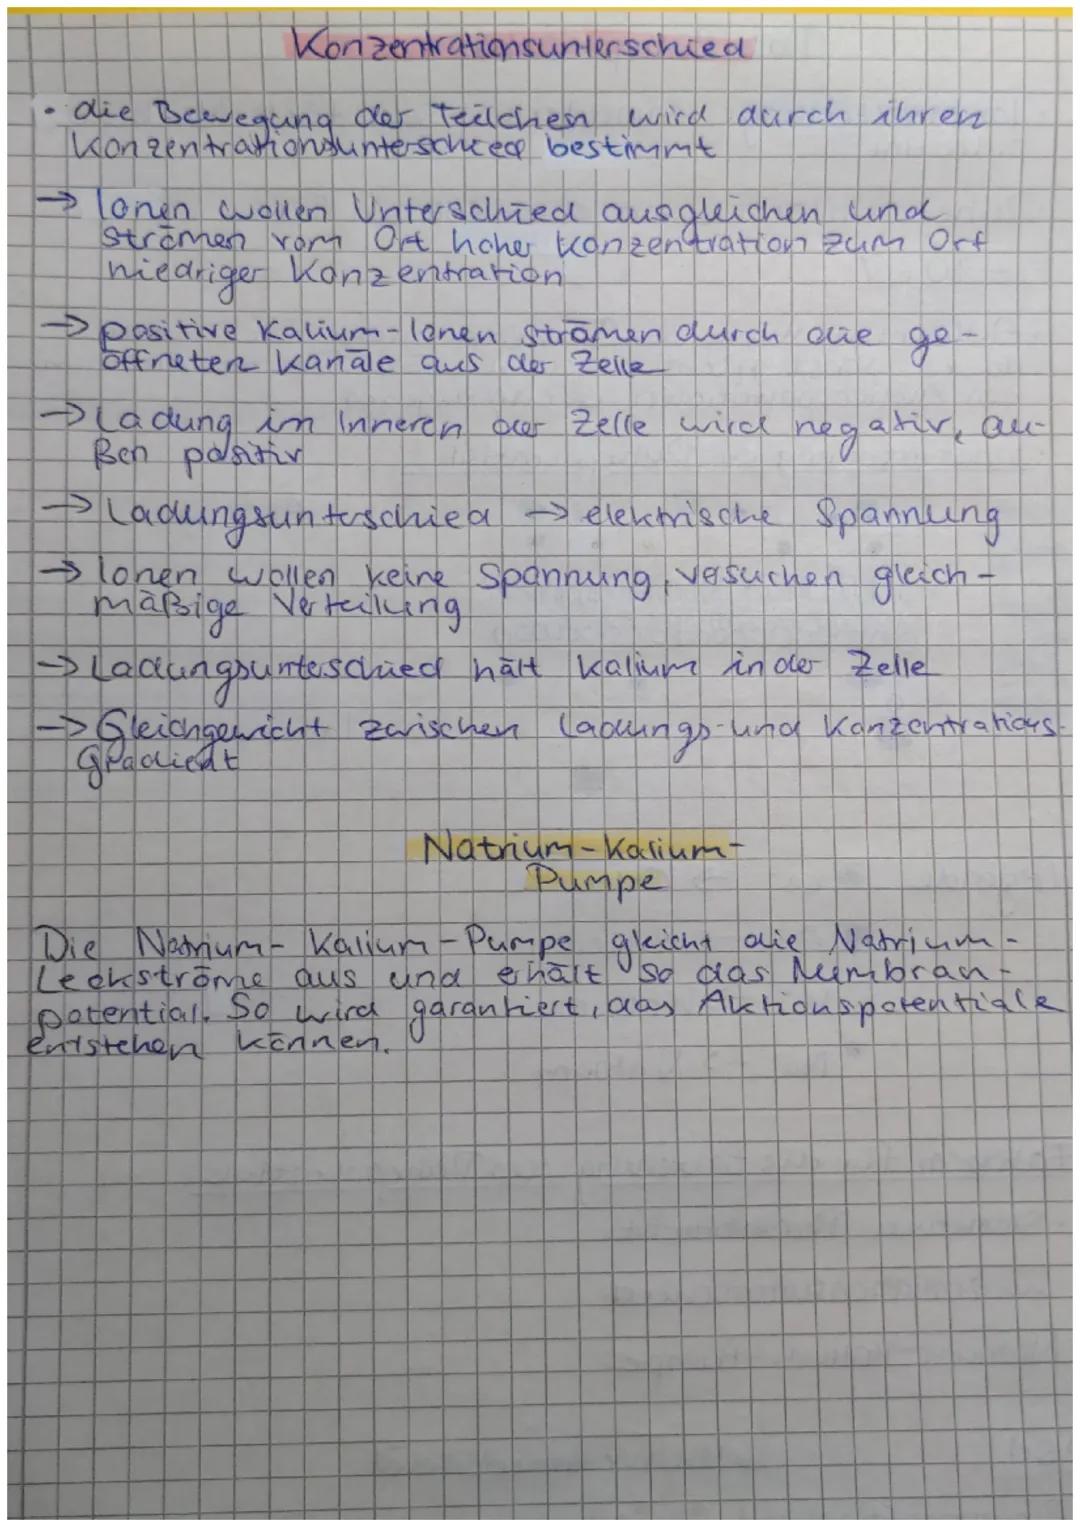 Konzentrationsunterschied
• die Bewegung der Teilchen wird durch ihren
Konzentrationsunterschied bestimmt
→ Ionen wollen Unterschied ausgleichen und
strömen vom Ort hoher Konzentration zum Ort
niedriger Konzentration
→ positive Kalium-Ionen strömen durch die ge-
öffneten Kanäle aus der Zelle
→ Ladung im Inneren der Zelle wird negativ, au-
ßen positiv
→ Ladungsunterschied → elektrische Spannung
→ Ionen wollen keine Spannung, versuchen gleich-
mäßige Verteilung
→ Ladungsunterschied hält Kalium in der Zelle
→ Gleichgewicht zwischen Ladungs-und Konzentrations-
gradient
Natrium-Kalium-
Pumpe
Die Natrium-Kalium-Pumpe gleicht die Natrium-
Leckströme aus und erhält so das Membran-
potential. So wird garantiert, das Aktionspotentiale
entstehen können.